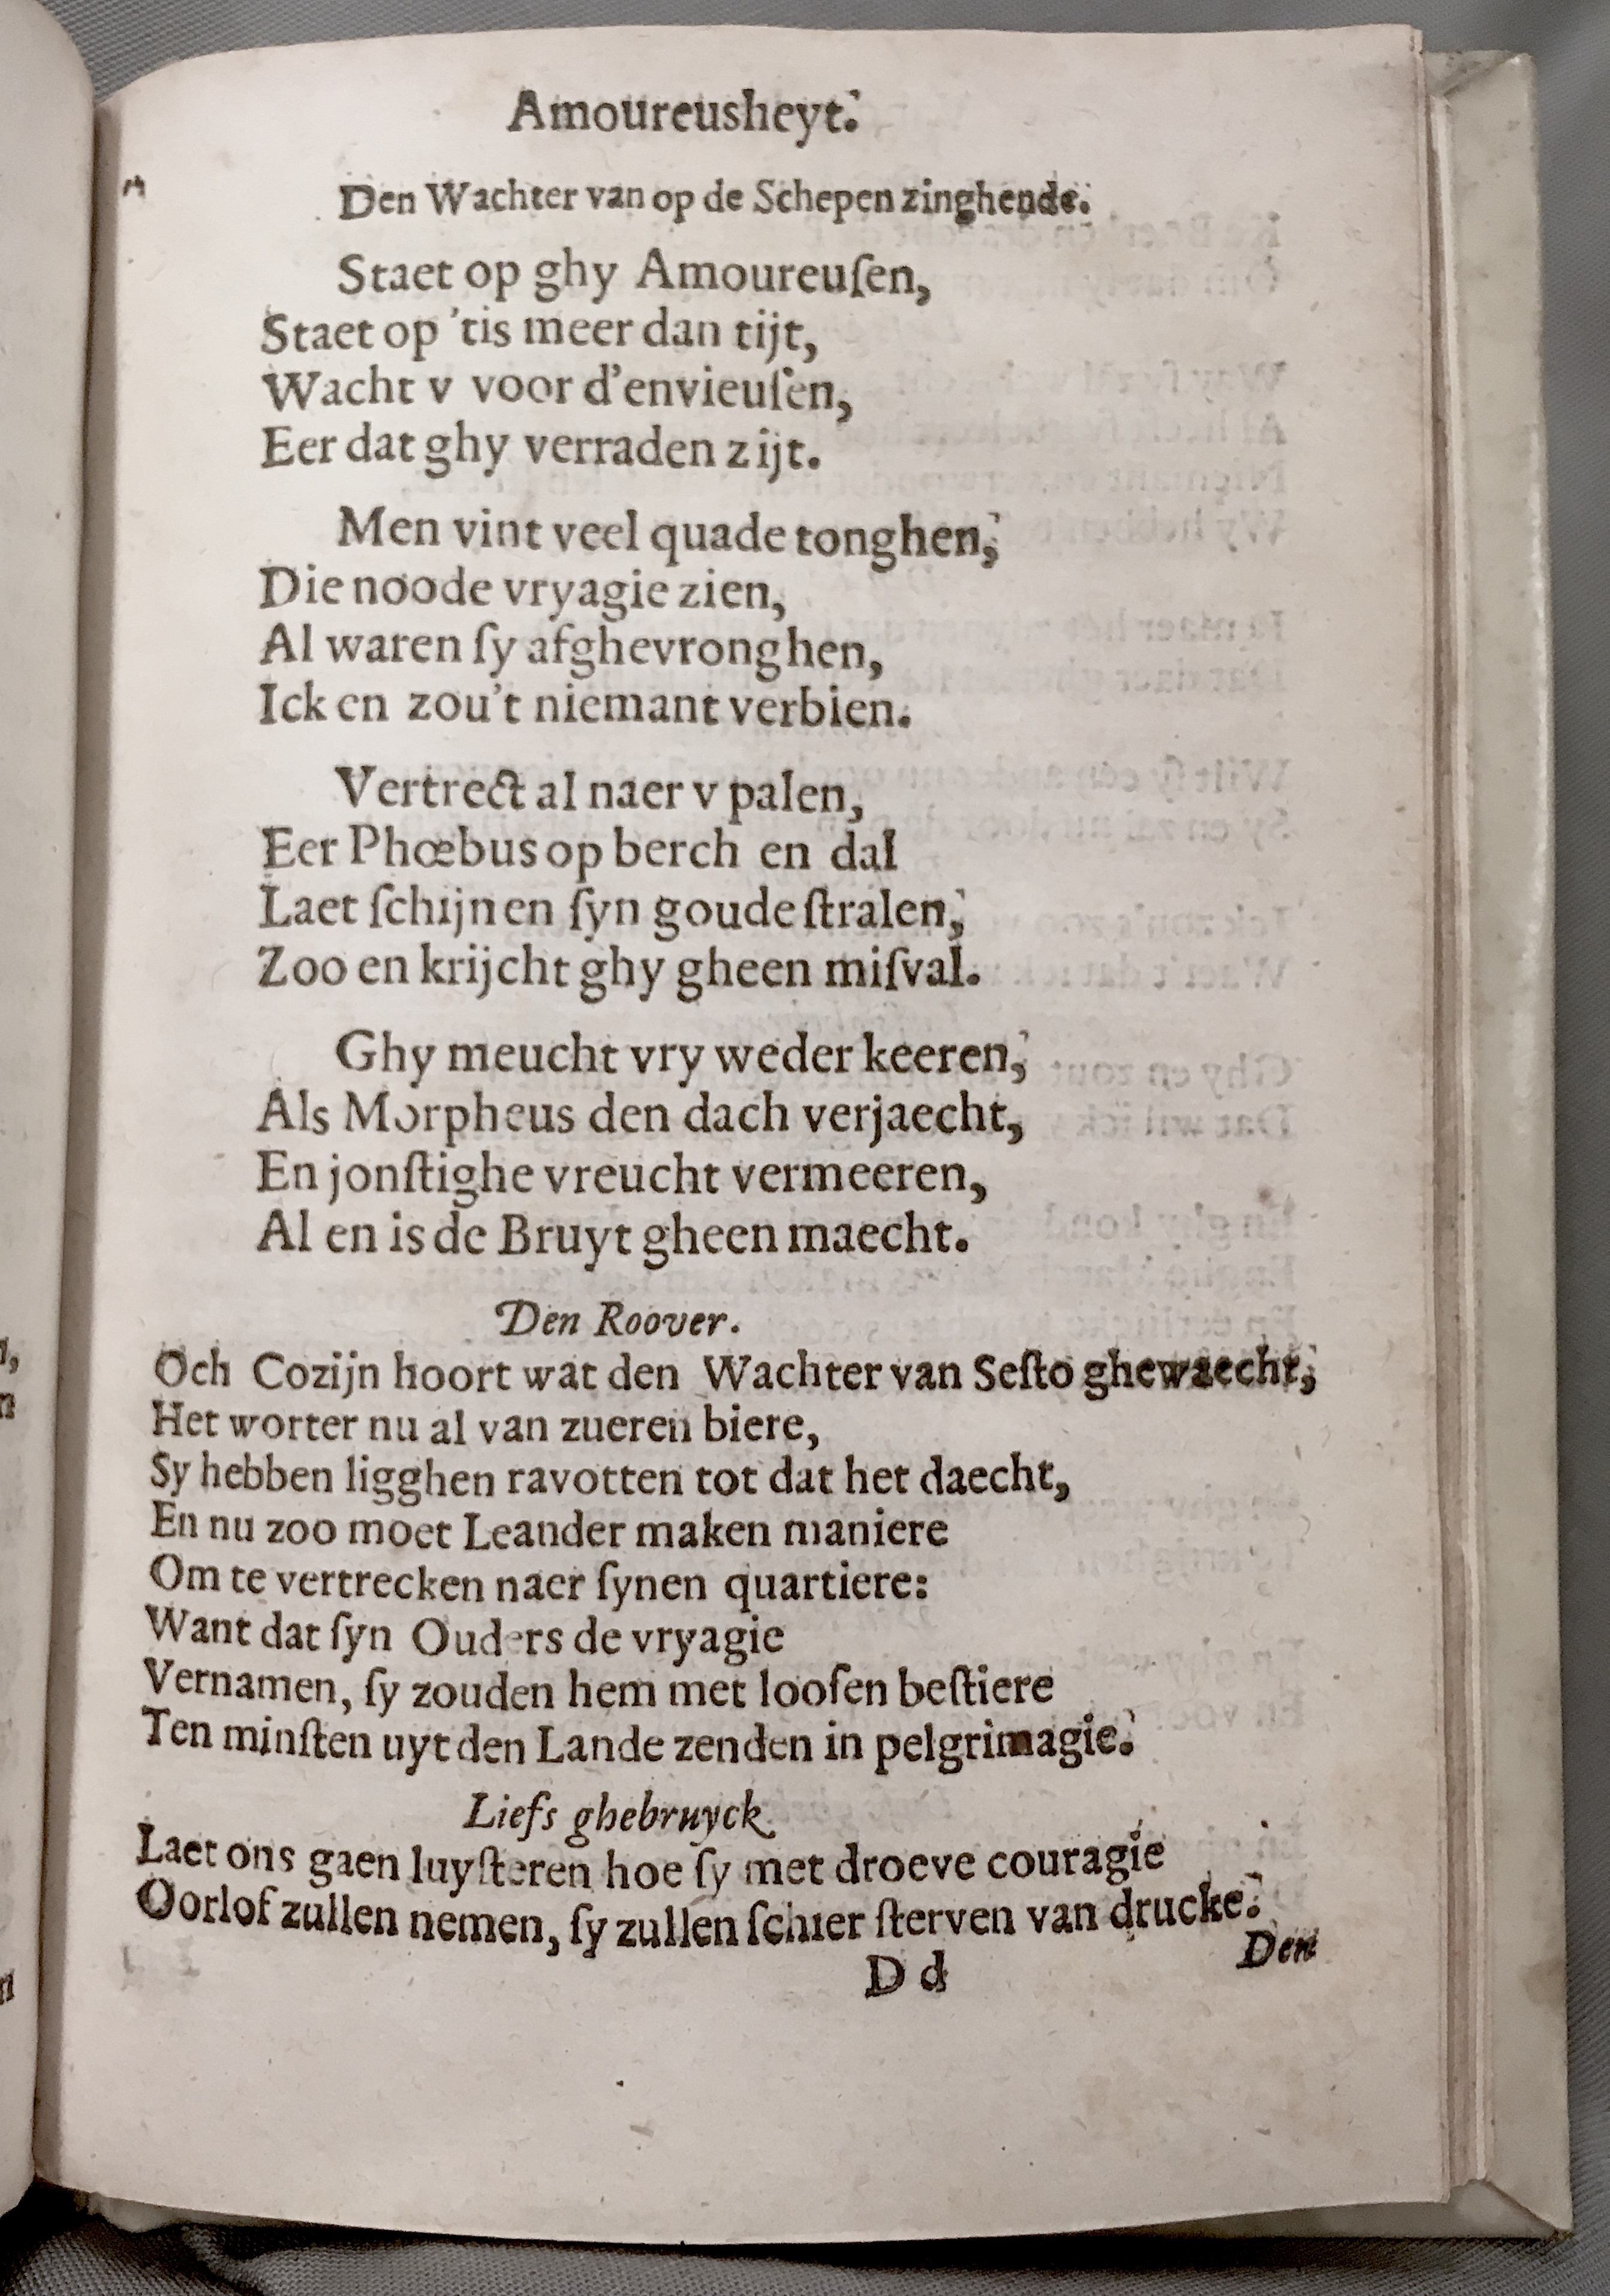 Amoureusheyt.
Den Wachter van op de Schepen zinghende.
Staet op ghy Amoureuſen,
Staet op 'tis meer dan tijt,
Wacht v voor d'envieuſen,
Eer dat ghy verraden zijt.
Men vint veel quade tonghen,
Die noode vryagie zien,
Al waren ſy afghevronghen,
Ick en zou't niemant verbien.
Vertrect al naer v palen,
Eer Phœbus op berch en dal
Laet ſchijnen ſyn goude ſtralen,
Zoo en krijcht ghy gheen miſval.
Ghy meucht vry weder keeren,
Als Morpheus den dach verjaecht,
En jonſtighe vreucht vermeeren,
Al en is de Bruyt gheen maecht.
Den Roover.
Och Cozijn hoort wat den Wachter van Seſto ghewaecht,
Het worter nu al van zueren biere,
Sy hebben ligghen ravotten tot dat het daecht,
En nu zoo moet Leander maken maniere
Om te vertrecken naer ſynen quartiere:
Want dat ſyn Ouders de vryagie
Vernamen, ſy zouden hem met looſen beſtiere
Ten minſten uyt den Lande zenden in pelgrimagie.
Liefs ghebruyck
Laet ons gaen luyſteren hoe ſy met droeve couragie
Oorlof zullen nemen, ſy zullen ſchier ſterven van drucke.
D d
Den